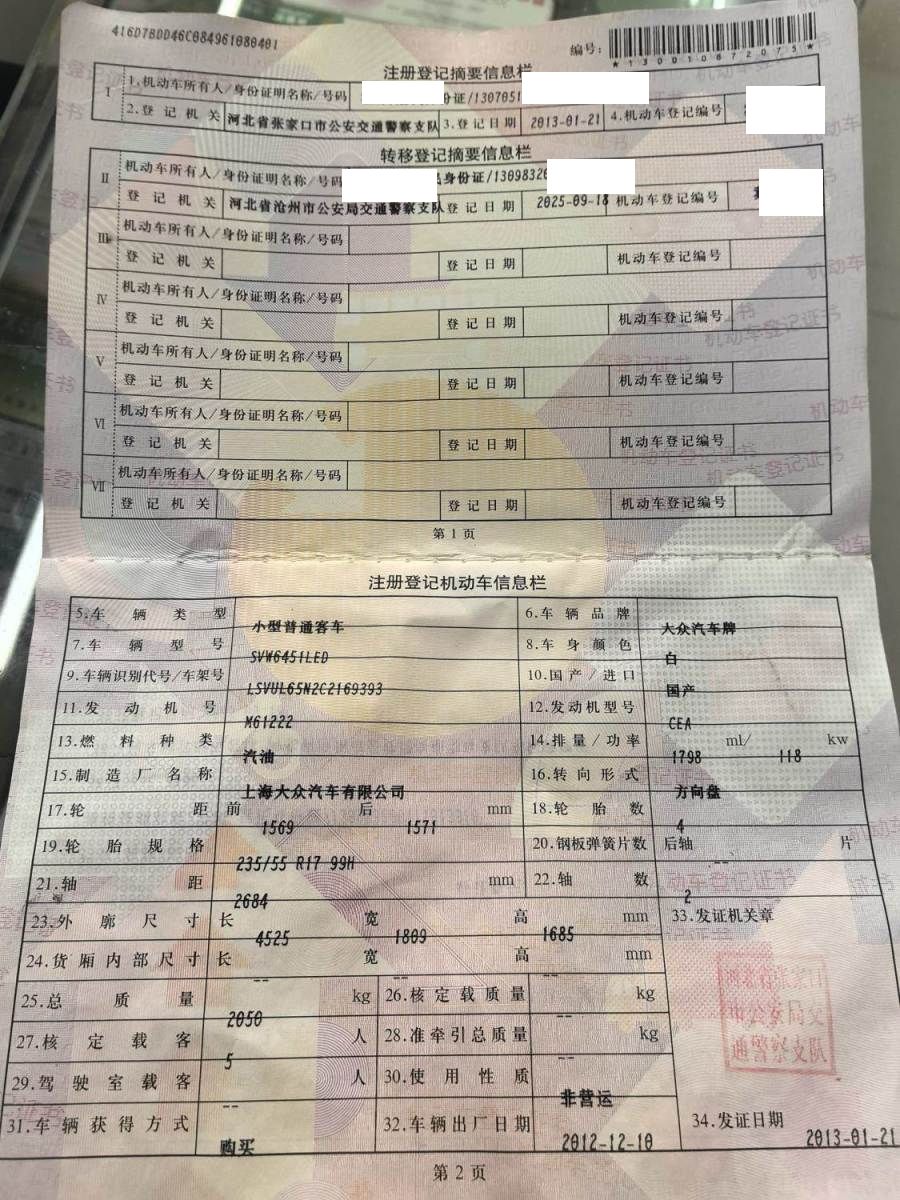 416D7BDD46C084961080401
编号:
*130010672075*
注册登记摘要信息栏
I 1.机动车所有人/身份证明名称/号码 份证/1307051
2.登记机关 河北省张家口市公安交通警察支队 3.登记日期 2013-01-21 4.机动车登记编号
转移登记摘要信息栏
II 机动车所有人/身份证明名称/号码 身份证/1309832
登记机关 河北省沧州市公安局交通警察支队 登记日期 2025-09-18 机动车登记编号
III 机动车所有人/身份证明名称/号码
登记机关 登记日期 机动车登记编号
IV 机动车所有人/身份证明名称/号码
登记机关 登记日期 机动车登记编号
V 机动车所有人/身份证明名称/号码
登记机关 登记日期 机动车登记编号
VI 机动车所有人/身份证明名称/号码
登记机关 登记日期 机动车登记编号
VII 机动车所有人/身份证明名称/号码
登记机关 登记日期 机动车登记编号
第1页
注册登记机动车信息栏
5.车辆类型 小型普通客车 6.车辆品牌 大众汽车牌
7.车辆型号 SVW6451LED 8.车身颜色 白
9.车辆识别代号/车架号 LSVUL65N2C2169393 10.国产/进口 国产
11.发动机号 M61222 12.发动机型号 CEA
13.燃料种类 汽油 14.排量/功率 1798 ml/ 118 kw
15.制造厂名称 上海大众汽车有限公司 16.转向形式 方向盘
17.轮距 前 1569 后 1571 mm 18.轮胎数 4
19.轮胎规格 235/55 R17 99H 20.钢板弹簧片数 后轴 -- 片
21.轴距 2684 mm 22.轴数 2
23.外廓尺寸 长 4525 宽 1809 高 1685 mm 33.发证机关章
24.货厢内部尺寸 长 -- 宽 -- 高 -- mm
河北省张家口
市公安局交
通警察支队
25.总质量 2050 kg 26.核定载质量 -- kg
27.核定载客 5 人 28.准牵引总质量 -- kg
29.驾驶室载客 -- 人 30.使用性质 非营运
31.车辆获得方式 购买 32.车辆出厂日期 2012-12-10 34.发证日期 2013-01-21
第2页